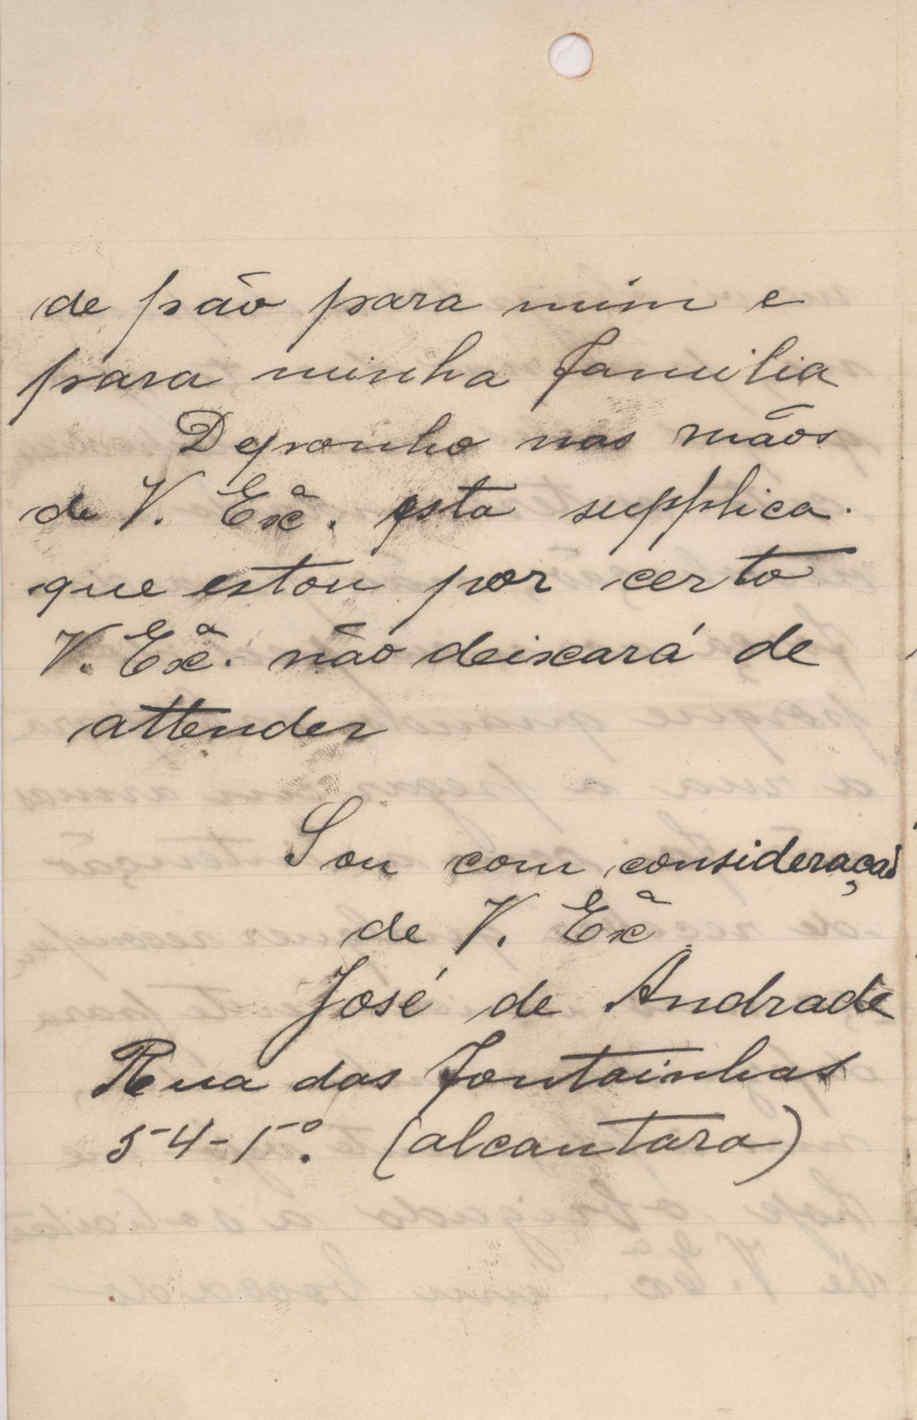 de pão para mim e
para minha familia
Deponho nas mãos
de V. Exª. esta supplica.
que estou por certo
V. Exª. não deixará de
attender
Sou com consideração
de V. Exª
José de Andrade
Rua das Fontainhas
54-1º. (alcantara)